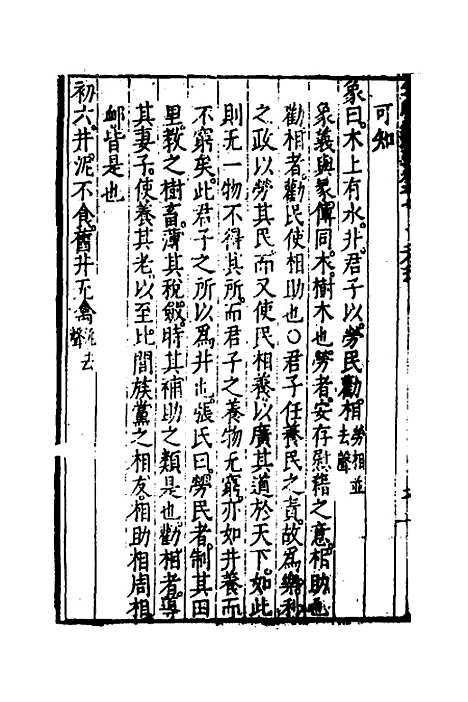 可知
象曰木上有水井君子以勞民勸相勞相並去聲
象義與彖傳同木樹木也勞者安存慰藉之意相助也
勸相者勸民使相助也○君子任養民之責故為樂利
之政以勞其民而又使民相養以廣其道於天下如此
則无一物不得其所而君子之養物无窮亦如井養而
不窮矣此君子之所以為井也張氏曰勞民者制其田
里教之樹畜薄其稅斂時其補助之類是也勸相者導
其妻子使養其老以至比閭族黨之相友相助相周相
䘏皆是也
初六井泥不食舊井无禽泥去聲